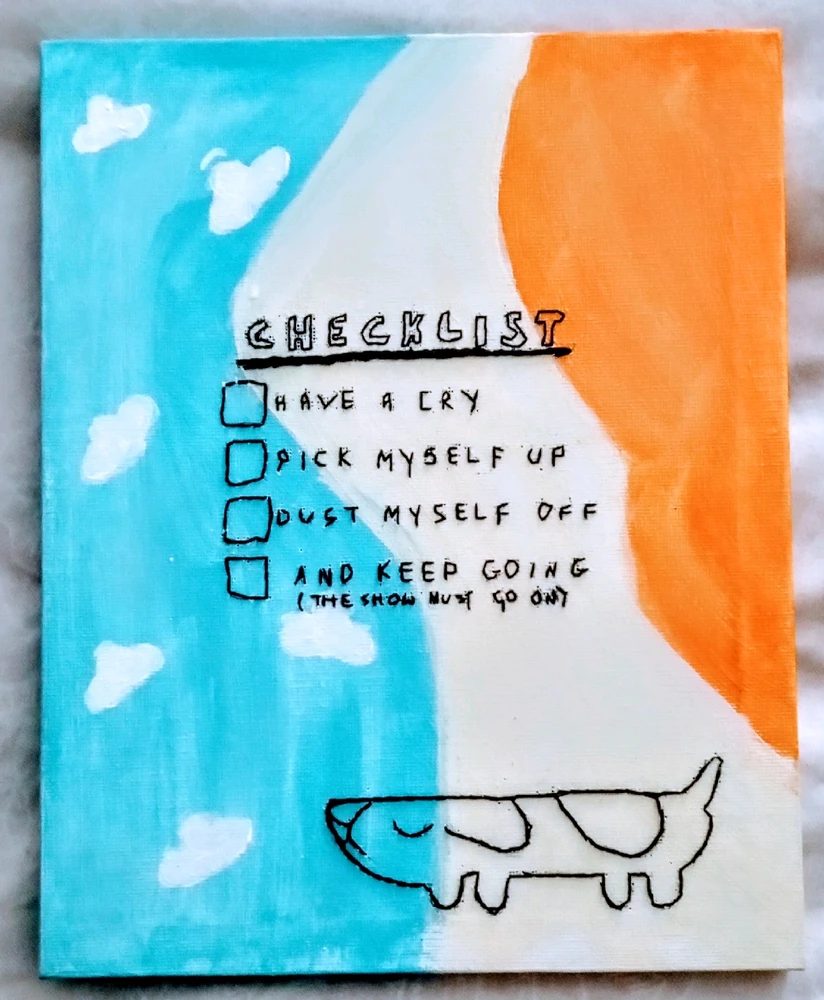 CHECKLIST
HAVE A CRY
PICK MYSELF UP
DUST MYSELF OFF
AND KEEP GOING
(THE SHOW MUST GO ON)